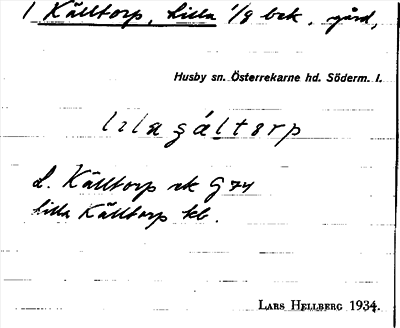 1 Källtorp, Lilla 1/8 bek. gård,
Husby sn. Österrekarne hd. Söderm. l.
lilaςáltorp
L. Källtorp ek G 74
Lilla Källtorp kb.
LARS HELLBERG 1934.